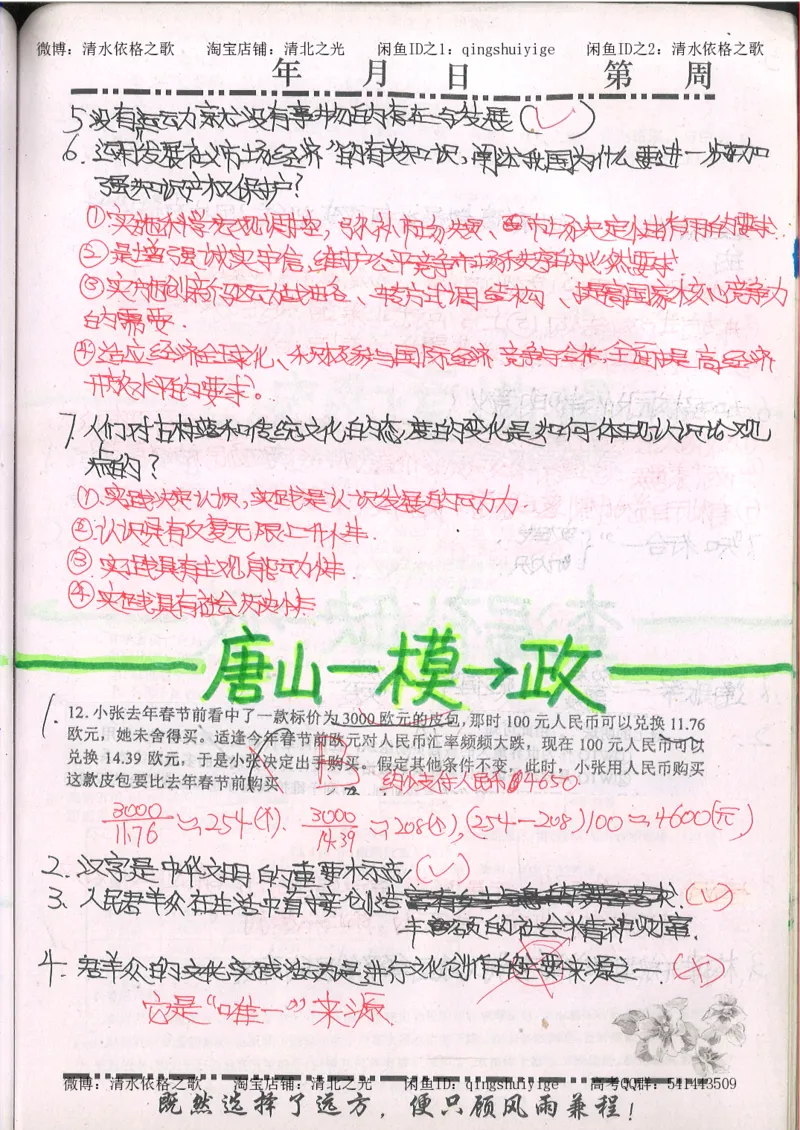 微博：清水依格之歌 淘宝店铺：清北之光 闲鱼ID之1：qingshuiyige 闲鱼ID之2：清水依格之歌
年 月 日 第 周
5.没有运动就没有事物的存在与发展(√)
6.运用"发展社会主义市场经济"的有关知识,阐述我国为什么要进一步加
强知识产权保护?
①.实施科学宏观调控, 市场决定 有用的要求
②是增强诚实守信,维护公平竞争市场秩序的必然要求.
③实施创新驱动战略、转方式调结构、提高国家核心竞争力
的需要.
④适应经济全球化、积极参与国际经济竞争与合作,全面提高经济
开放水平的要求。
7.人们对古村落和传统文化的态度的变化是如何体现认识论观
点的?
①.实践决定认识,实践是认识发展的动力.
②.认识具有反复无限上升性.
③实践具有主观能动性.
④实践具有社会历史性.
唐山一模→政
1.
12.小张去年春节前看中了一款标价为3000欧元的皮包,那时100元人民币可以兑换11.76
欧元,她未舍得买。适逢今年春节前欧元对人民币汇率频频大跌,现在100元人民币可以
兑换14.39欧元,于是小张决定出手购买。假定其他条件不变,此时,小张用人民币购买
这款皮包要比去年春节前购买 B 约少支付人民币4650.
3000/11.76≈254(个). 3000/14.39≈208(个),(254-208)100≈4600(元)
2.汉字是中华文明的重要标志(√)
3.人民群众在生活中直接创造 (√)
丰富的社会精神财富.
4.人民群众的文化实践活动是进行文化创作的主要来源之一(×)
它是"唯一"来源
微博：清水依格之歌 淘宝店铺：清北之光 闲鱼ID：qingshuiyige 高考QQ群：541443509
既然选择了远方，便只顾风雨兼程！